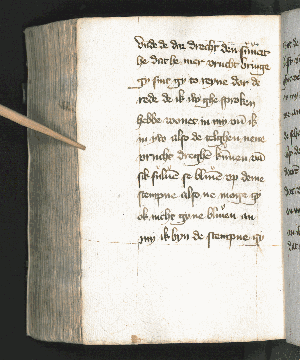 vnde de dar drecht den suuert
he dat he mer vrucht bringe
gy sint gy to reyne dor de
rede de ik iw ghe sproken
hebbe wonet in my vn̄ ik
in iw also de telghen nene
vrucht dreghē kunen vn̄
sik suluē se bliuē op deme
stempne also ne moge gy
ok nicht gy ne bliuen an
my ik byn de stempne gy